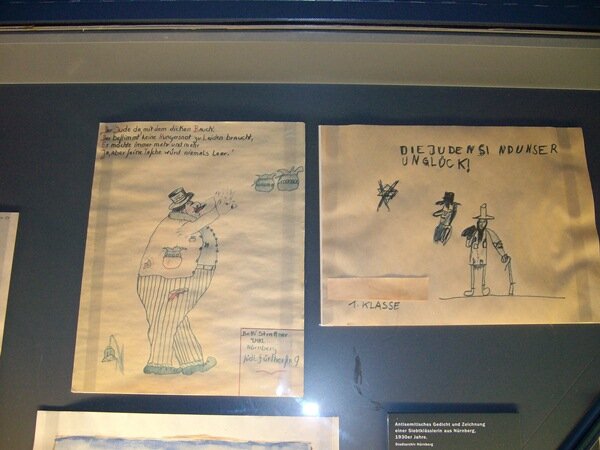 Der Jude da mit dem dicken Bauch,
Der bestimmt keine Hungersnot zu Leiden braucht,
Er möchte immer mehr und mehr
Ja, Aber seine Tasche wird niemals Leer."
Nürnberg
DIE JUDEN SI ND UNSER
UNGLÖCK!
1. KLASSE
Antisemitisches Gedicht und Zeichnung
einer Siebtklässlerin aus Nürnberg,
1930er Jahre.
Stadtarchiv Nürnberg